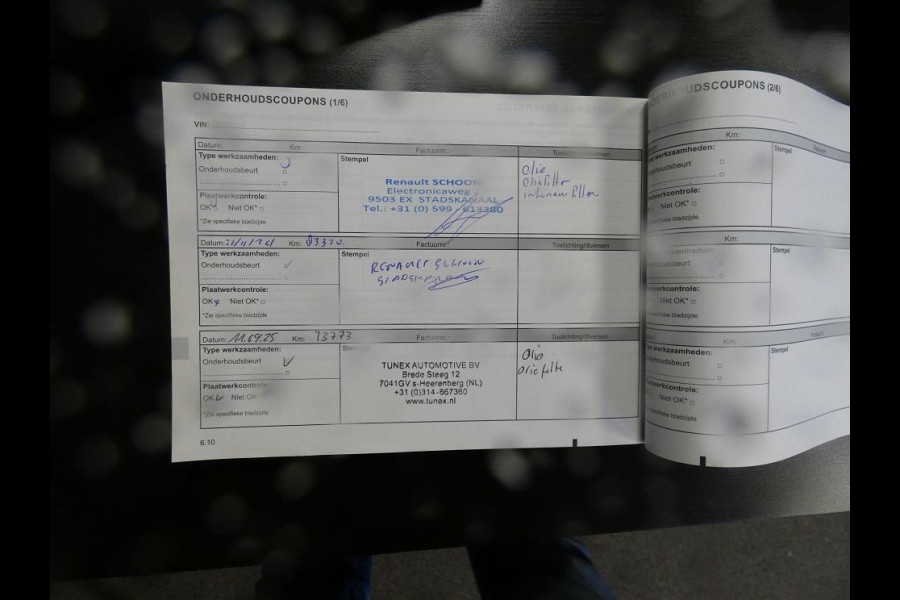 ONDERHOUDSCOUPONS (1/6)
VIN:
Datum: Km: Factuurnr.: Toelichting/diversen
Type werkzaamheden:
Onderhoudsbeurt
Stempel
Renault SCHOON
Electronicaweg
9503 EX STADSKANAAL
Tel.: +31 (0) 599 - 613380
Olie
Oliefilter
interieurfilter
Plaatwerkcontrole:
OK Niet OK*
*Zie specifieke bladzijde
Datum: Km: Factuurnr.: Toelichting/diversen
Type werkzaamheden:
Onderhoudsbeurt
Stempel
RENAULT SCHOON
STADSKANAAL
Plaatwerkcontrole:
OK Niet OK*
*Zie specifieke bladzijde
Datum: 11.04.25 Km: 13773 Factuurnr.: Toelichting/diversen
Type werkzaamheden:
Onderhoudsbeurt
Stempel
TUNEX AUTOMOTIVE BV
Brede Steeg 12
7041GV s-Heerenberg (NL)
+31 (0)314-667360
www.tunex.nl
Olie
Oliefilte
Plaatwerkcontrole:
OK Niet OK
*Zie specifieke bladzijde
6.10
ONDERHOUDSCOUPONS (2/6)
Km: Factuurnr.
Type werkzaamheden:
Onderhoudsbeurt
Stempel
Plaatwerkcontrole:
OK Niet OK*
*Zie specifieke bladzijde
Km:
Type werkzaamheden:
Onderhoudsbeurt
Stempel
Plaatwerkcontrole:
OK Niet OK*
*Zie specifieke bladzijde
Km:
Type werkzaamheden:
Onderhoudsbeurt
Stempel
Plaatwerkcontrole:
Niet OK*
*Zie specifieke bladzijde